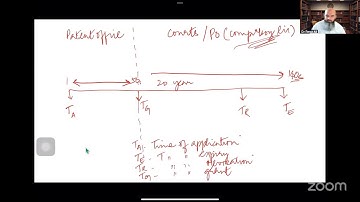 Patent office
Courts / PO (compulsory lic)
20 year
TA
TG
TR
TE
TA - Time of application
TE - T " " expiry
TR - " " revocation
TG - " " grant
zoom